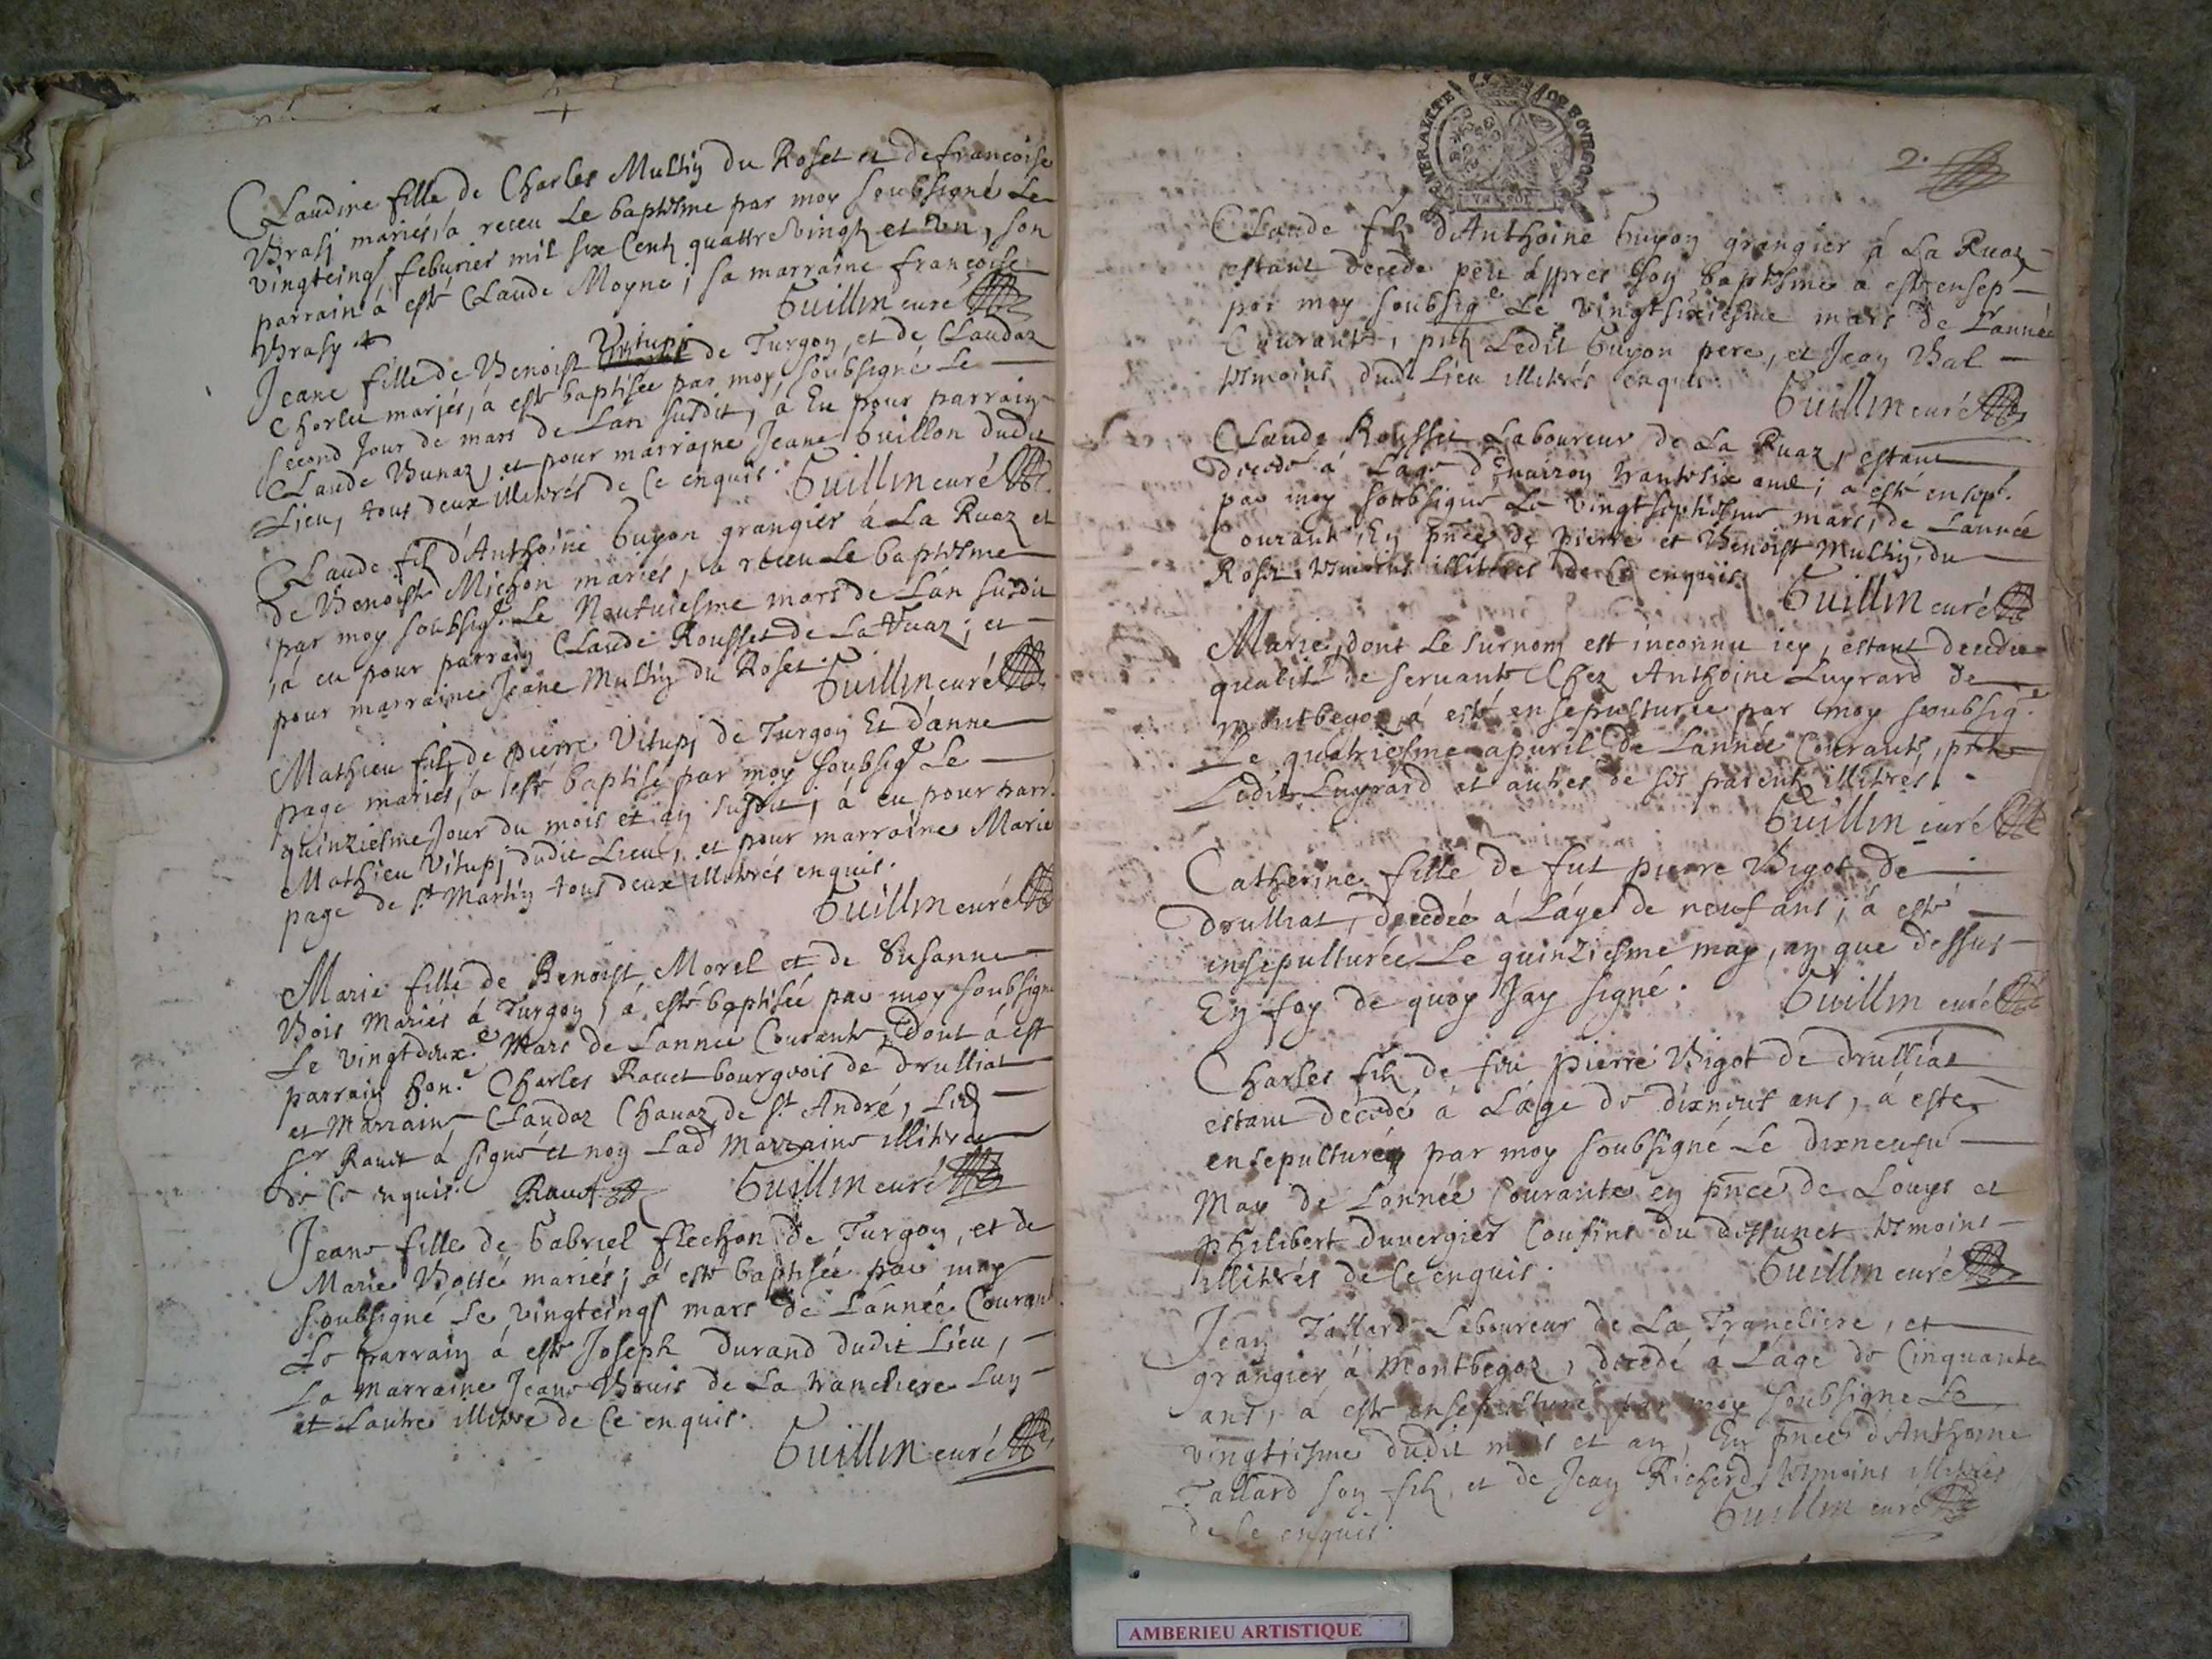 Claudine fille de Charles Multhy du Roset et de francoise
Brasj mariés, a receu le baptisme par moy soubsigné le
vingtcinq febvrier mil six cents quattre vingts et un, son
parrain a esté Claude Moyne, sa marraine francoise
Brasy
Guillin curé
Vitupj
Jeane fille de Benoist de Turgon, et de Claudaz
Chorlet mariés, a esté baptisée par moy soubsigné le
second jour de mars de l'an susdit, a eu pour parrain
Claude Bunaz, et pour marrajne Jeane Guillon dudit
Lieu, tous deux illitrés de ce enquis. Guillin curé
Claude fils d'Anthoine Guyon grangier á La Ruaz et
de Benoiste Michon mariés, a receu le baptisme
par moy soubsig.é Le Neufuiesme mars de L'an susdit
a eu pour parrain Claude Rousset de La Ruaz; et
pour marraine Jeane Multhy du Roset. Guillin curé
Mathieu fils de pierre Vitupj de Turgon Et d'anne
page mariés, a esté baptisé par moy soubsig.é Le
quinziesme Jour du mois et an susdit, a eu pour parr.
Mathieu Vitupj dudit Lieu, et pour marraine Marie
page de s.t Martin tous deux illitrés enquis.
Guillin curé
Marie fille de Benoist Morel et de Susanne
Bois Mariés á Turgon, á esté baptisée par moy soubsigné
Le vingtdeux.e Mars de Lannée Courante, dont á est
parrain hon.e Charles Ravet bourgeois de druillat
et Marraine Claudaz Chavaz de s.t André, Led.
s.r Ravet á signé et non Lad. Marraine illitrée
de ce enquis. Ravet Guillin curé
Jeane fille de Gabriel flechon de Turgon, et de
Marie Bollé mariés; a esté baptisée par moy
soubsigné Le vingtcinq mars de L'année Courant.
Le parrain á esté Joseph durand dudit Lieu,
La Marraine Jeane Bouis de La tranchere Luy
et Lautre illitré de Ce enquis.
Guillin curé
GENERALITE DE BOURGOGNE
2.
Claude fils d'Anthoine Guyon grangier á La Ruaz
estant decedé peu áppres son baptisme a esté ensep
par moy soubsig.é Le vingtsixiesme mars de L'année
Courante, pnts Ledit Guyon pere, et Jean Bal
tesmoins dud. Lieu illitrés enquis. Guillin curé
Claude Rousset Laboureur de La Ruaz, estant
decedé á Láge d'Enuiron trante six ans; a esté ensept.
par moy soubsigné Le vingtseptiesme mars, de Lannée
Courante, En pnce de pierre et Benoist Multhy, du
Rosez tesmoins illittrés de Ce enquis. Guillin curé
Marie, dont Le surnom est inconnu icy, estant decedée
qualité de servante Chez Anthoine Luyrard de
montbegoz, á esté ensepulturée par moy soubsig.é
Le quatriesme apuril de Lannée Courante, pnts
Ledit Luyrard et autres de ses parents illitrés.
Guillin curé
Catherine fille de fut pierre Bigot de
druillat, decedée á Láge de neuf ans, á esté
ensepulturée Le quinziesme may, an que dessus
En foy de quoy Jay signé. Guillin curé
Charles fils de feu pierre Bigot de druillat
estant decedé á Láge de dixneuf ans, á esté
ensepulturé par moy soubsigné Le dixneufu
May de Lannée Courante en pnce de Louys et
philibert duvergier Cousins du deffunct tesmoins
illitrés de Ce enquis. Guillin curé
Jean Tallard Laboureur de La Trancliere, et
grangier á Montbegoz, decedé á Láge de Cinquante
ans, á esté ensepulturé par moy soubsigné Le
vingtiesme dudit mois et an, En pnce d'Anthoine
Tallard son fils, et de Jean Richerd, tesmoins illitrés
de Ce enquis. Guillin curé
AMBERIEU ARTISTIQUE